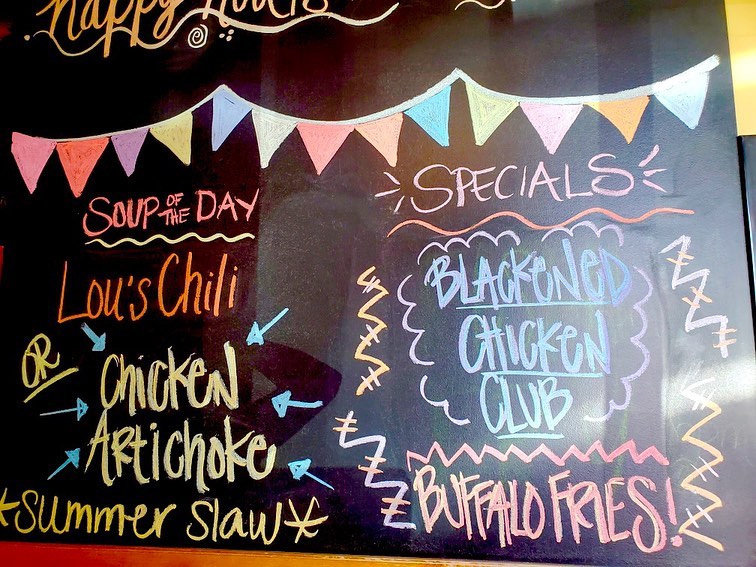 Happy Hours
SOUP OF THE DAY
Lou's Chili
OR
Chicken
Artichoke
*Summer Slaw*
SPECIALS
BLACKENED
CHICKEN
CLUB
BUFFALO FRIES!